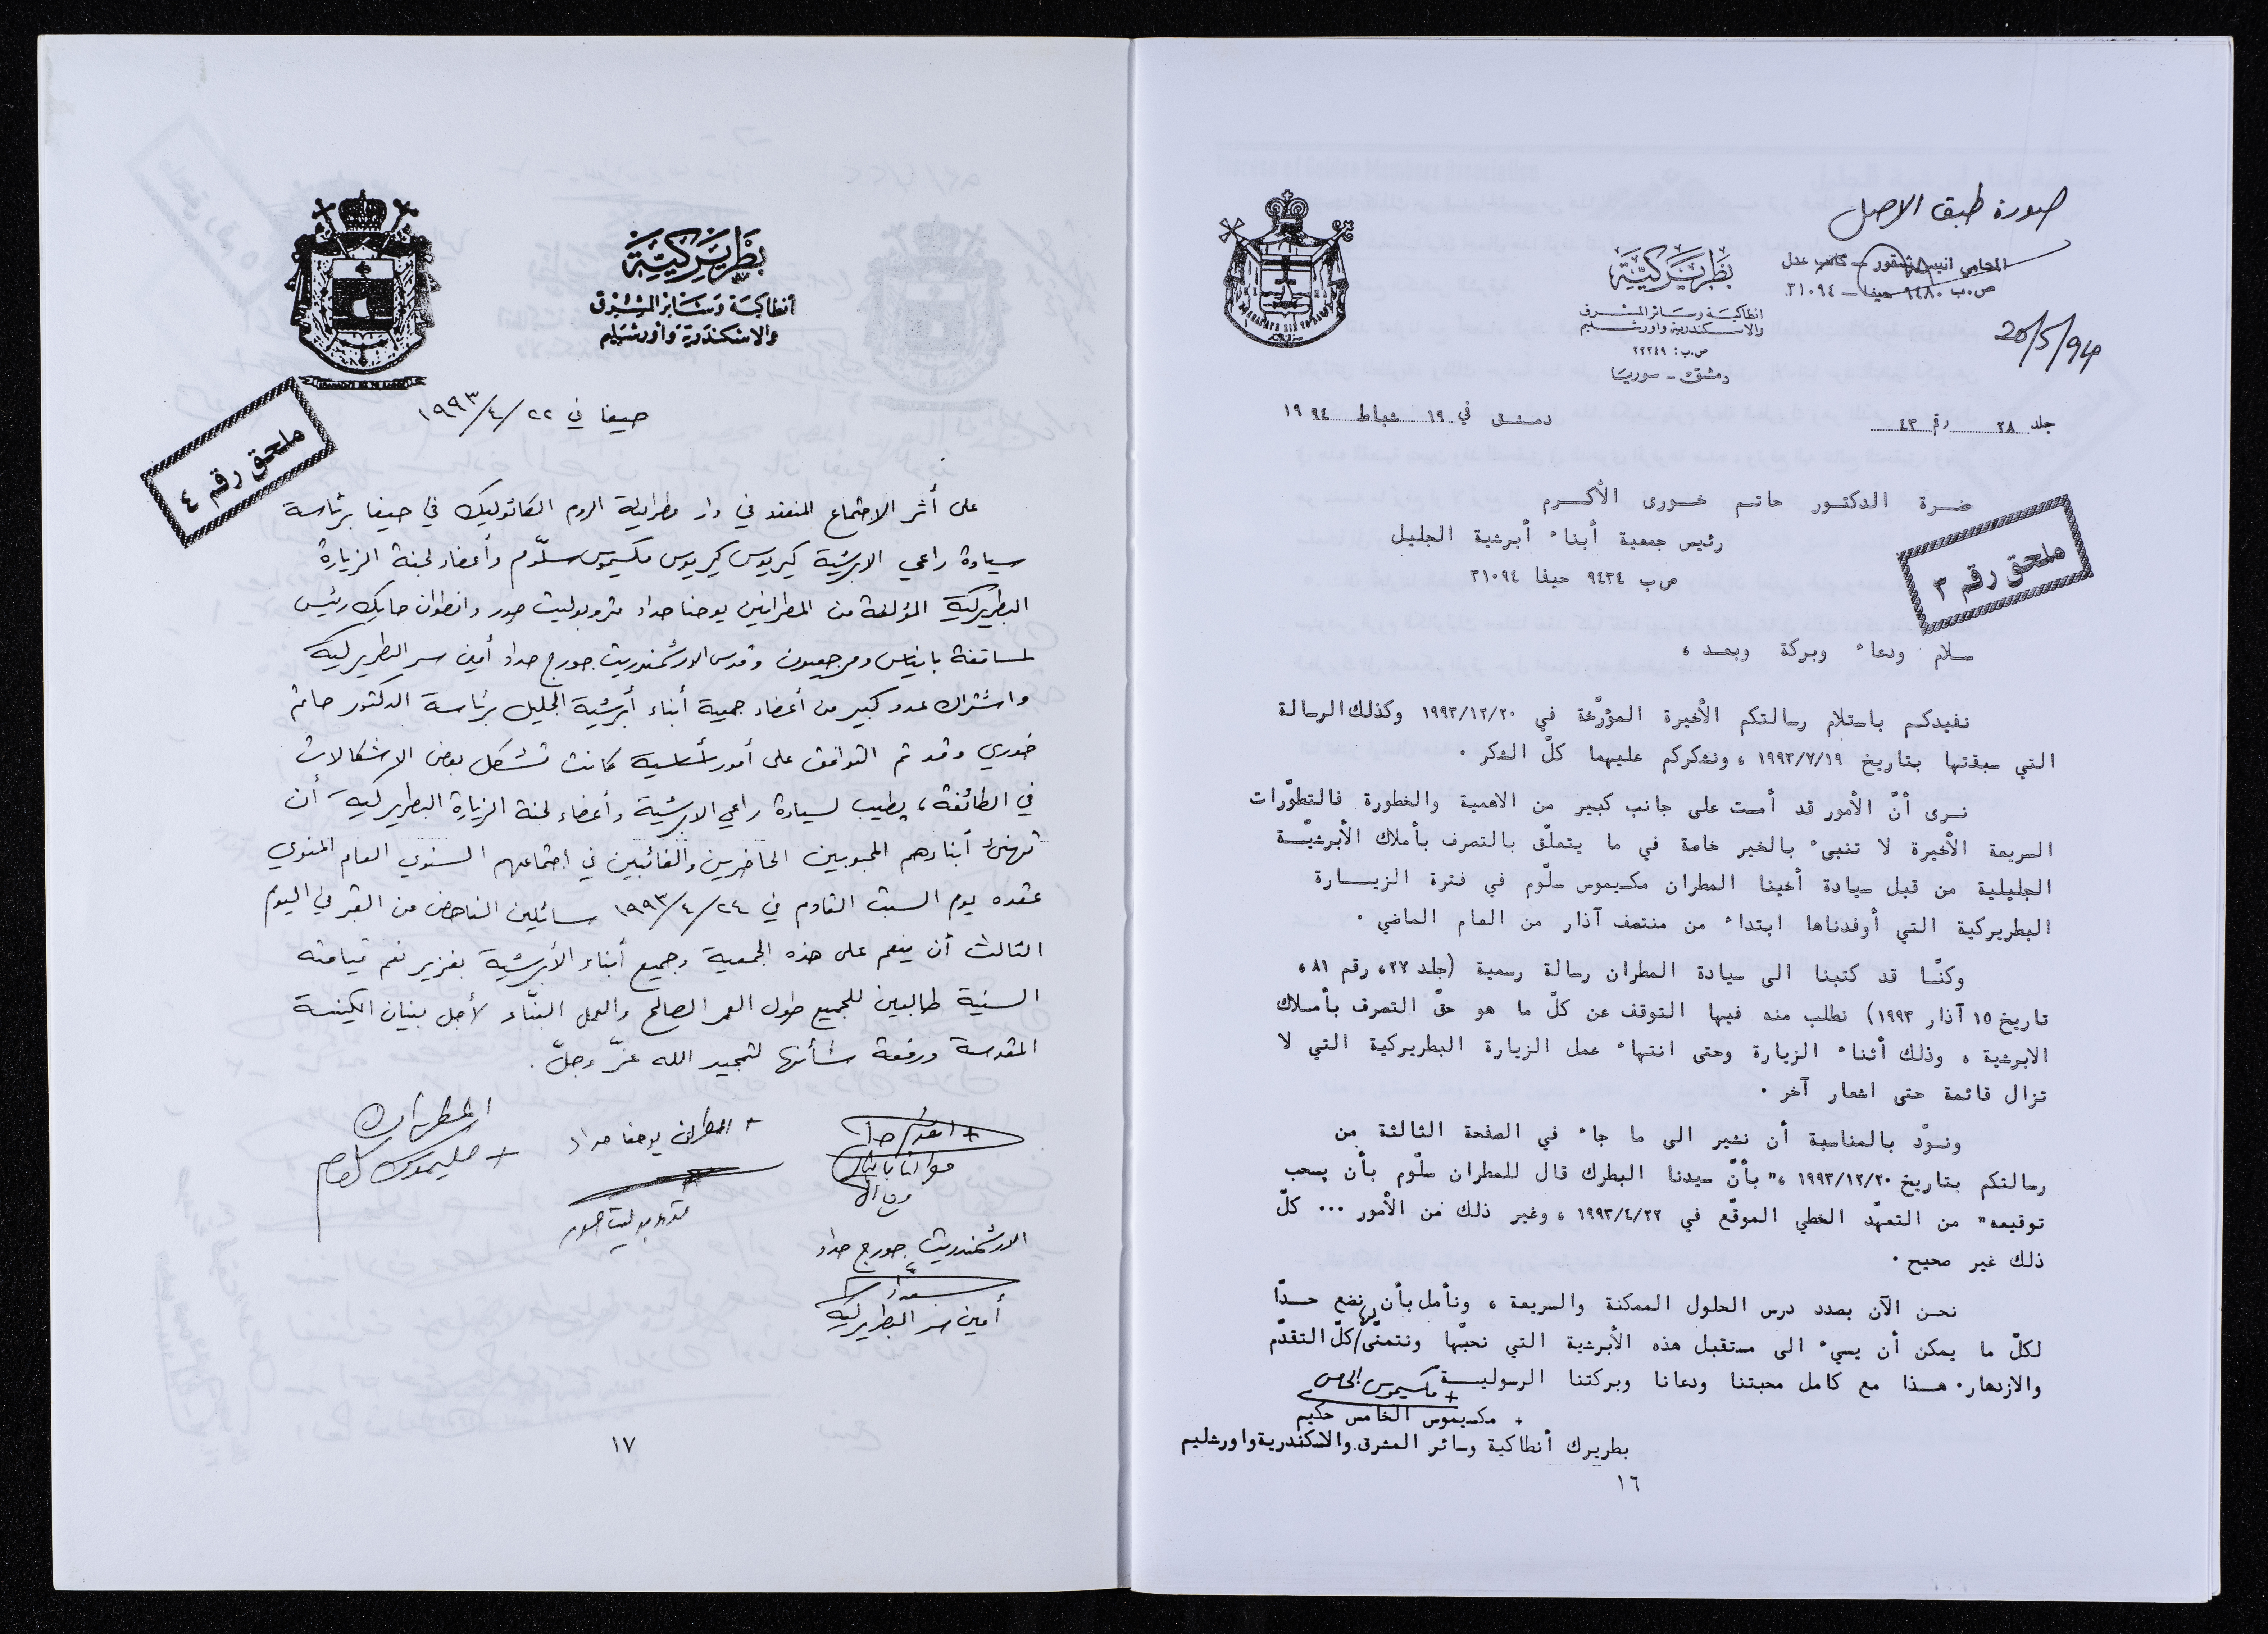 صورة طبق الاصل
المحامي انيس شقور - كاتب عدل
ص.ب ٩٤٨٠ حيفا - ٣١٠٩٤
20/5/94
بطريركية
انطاكية وسائر المشرق
والاسكندرية واورشليم
ص.ب: ٢٢٢٤٩
دمشق - سوريا
جلد ٢٨ رقم ٤٣ دمشق في ١٩ شباط ١٩٩٤
ملحق رقم ٣
حضرة الدكتور حاتم خورى الأكرم
رئيس جمعية أبناء أبرشية الجليل
ص ب ٩٤٣٤ حيفا ٣١٠٩٤
سلام ودعاء وبركة وبعد ،
نفيدكم باستلام رسالتكم الأخيرة المؤرّخة في ١٩٩٣/١٢/٢٠ وكذلك الرسالة
التي سبقتها بتاريخ ١٩٩٣/٧/١٩ ، ونشكركم عليهما كلّ الشكر .
نرى أنّ الأمور قد أمست على جانب كبير من الاهمية والخطورة فالتطوّرات
السريعة الأخيرة لا تنبىء بالخير خاصة في ما يتعلّق بالتصرف بأملاك الأبرشيّة
الجليلية من قبل سيادة أخينا المطران مكسيموس سلّوم في فترة الزيارة
البطريركية التي أوفدناها ابتداء من منتصف آذار من العام الماضي .
وكنّا قد كتبنا الى سيادة المطران رسالة رسمية (جلد ٢٧، رقم ٨١،
تاريخ ١٥ آذار ١٩٩٣) نطلب منه فيها التوقف عن كلّ ما هو حقّ التصرف بأملاك
الابرشية ، وذلك أثناء الزيارة وحتى انتهاء عمل الزيارة البطريركية التي لا
تزال قائمة حتى اشعار آخر .
ونودّ بالمناسبة أن نشير الى ما جاء في الصفحة الثالثة من
رسالتكم بتاريخ ١٩٩٣/١٢/٢٠ ،" بأنّ سيدنا البطرك قال للمطران سلّوم بأن يسحب
توقيعه" من التعهّد الخطي الموقّع في ١٩٩٣/٤/٢٢ ، وغير ذلك من الأمور ... كلّ
ذلك غير صحيح .
نحن الآن بصدد درس الحلول الممكنة والسريعة ، ونأمل بأن نضع حدّا
لكلّ ما يمكن أن يسيء الى مستقبل هذه الأبرشية التي نحبّها ونتمنّى لها كلّ التقدّم
والازدهار. هذا مع كامل محبتنا ودعانا وبركتنا الرسولية
+ مكسيموس الخامس
+ مكسيموس الخامس حكيم
بطريرك أنطاكية وسائر المشرق والاسكندرية واورشليم
١٦
بطريركية
انطاكية وسائر المشرق
والاسكندرية واورشليم
حيفا في ٢٢/٤/١٩٩٣
ملحق رقم ٤
على أثر الاجتماع المنعقد في دار مطرانية الروم الكاثوليك في حيفا برئاسة
سيادة راعي الابرشية كيريوس كيريوس مكسيموس سلّوم وأعضاء لجنة الزيارة
البطريركية المؤلفة من المطرانين يوحنا حداد متروبوليت صور وانطوان حايك رئيس
اساقفة بانياس ومرجعيون وقدس الارشمندريت جورج حداد أمين سر البطريركية
واشتراك عدد كبير من أعضاء جمعية أبناء أبرشية الجليل برئاسة الدكتور حاتم
خوري وقد تم التوافق على أمور أساسية كانت تشكل بعض الاشكالات
في الطائفة ، يطيب لسيادة راعي الابرشية وأعضاء لجنة الزيارة البطريركية أن
تهنئ أبناءهم المحبوبين الحاضرين والغائبين في اجتماعهم السنوي العام المنوي
عقده يوم السبت القادم في ٢٤/٤/١٩٩٣ سائلين الناهض من القبر في اليوم
الثالث أن ينعم على هذه الجمعية وجميع أبناء الأبرشية بغزير نعم قيامته
السنية طالبين للجميع طول العمر الصالح والعمل البنّاء لأجل بنيان الكنيسة
المقدسة ورفعة شأنها لتمجيد الله عزّ وجلّ .
المطران
+ مكسيموس سلوم
+ المطران يوحنا حداد
متروبوليت صور
الارشمندريت جورج حداد
أمين سر البطريركية
١٧